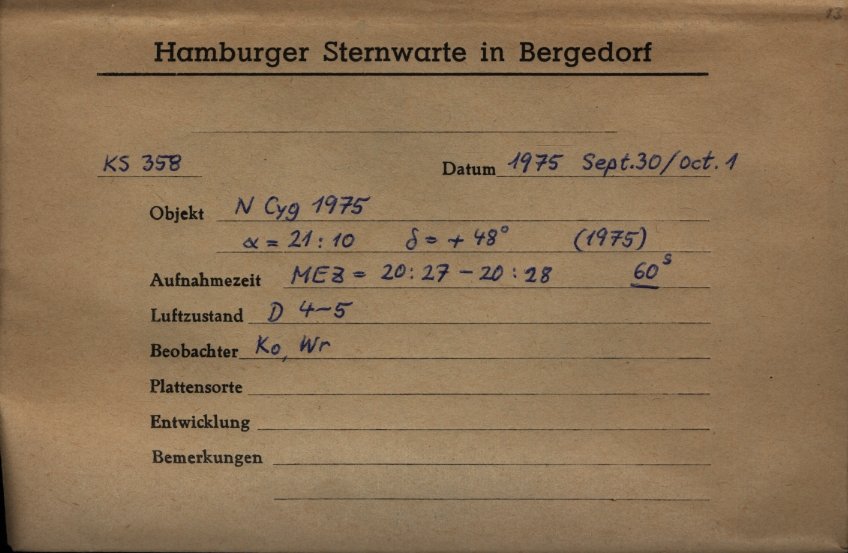 13
Hamburger Sternwarte in Bergedorf
KS 358 Datum 1975 Sept.30/Oct. 1
Objekt N Cyg 1975
α = 21 : 10 δ = + 48° (1975)
Aufnahmezeit MEZ = 20 : 27 – 20 : 28 60ˢ
Luftzustand D 4–5
Beobachter Ko, Wr
Plattensorte
Entwicklung
Bemerkungen